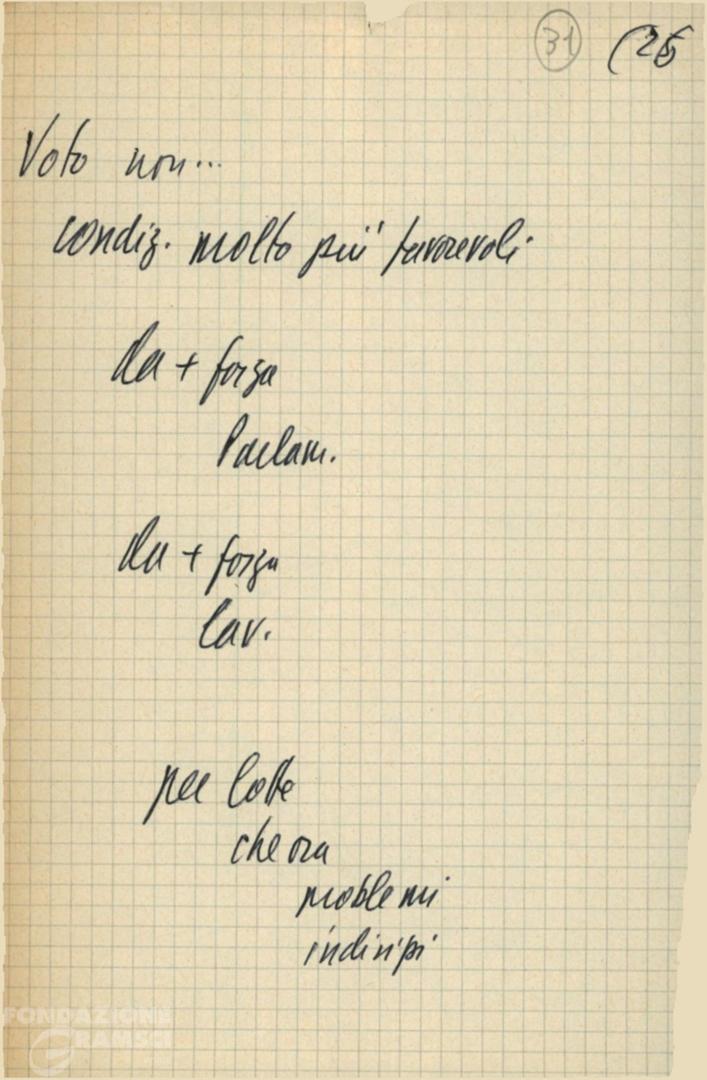 31 (25
Voto non...
condiz. molto più favorevoli
da + forza
Parlam.
da + forza
lav.
per lotte
che ora
problemi
FONDAZIONE
GRAMSCI